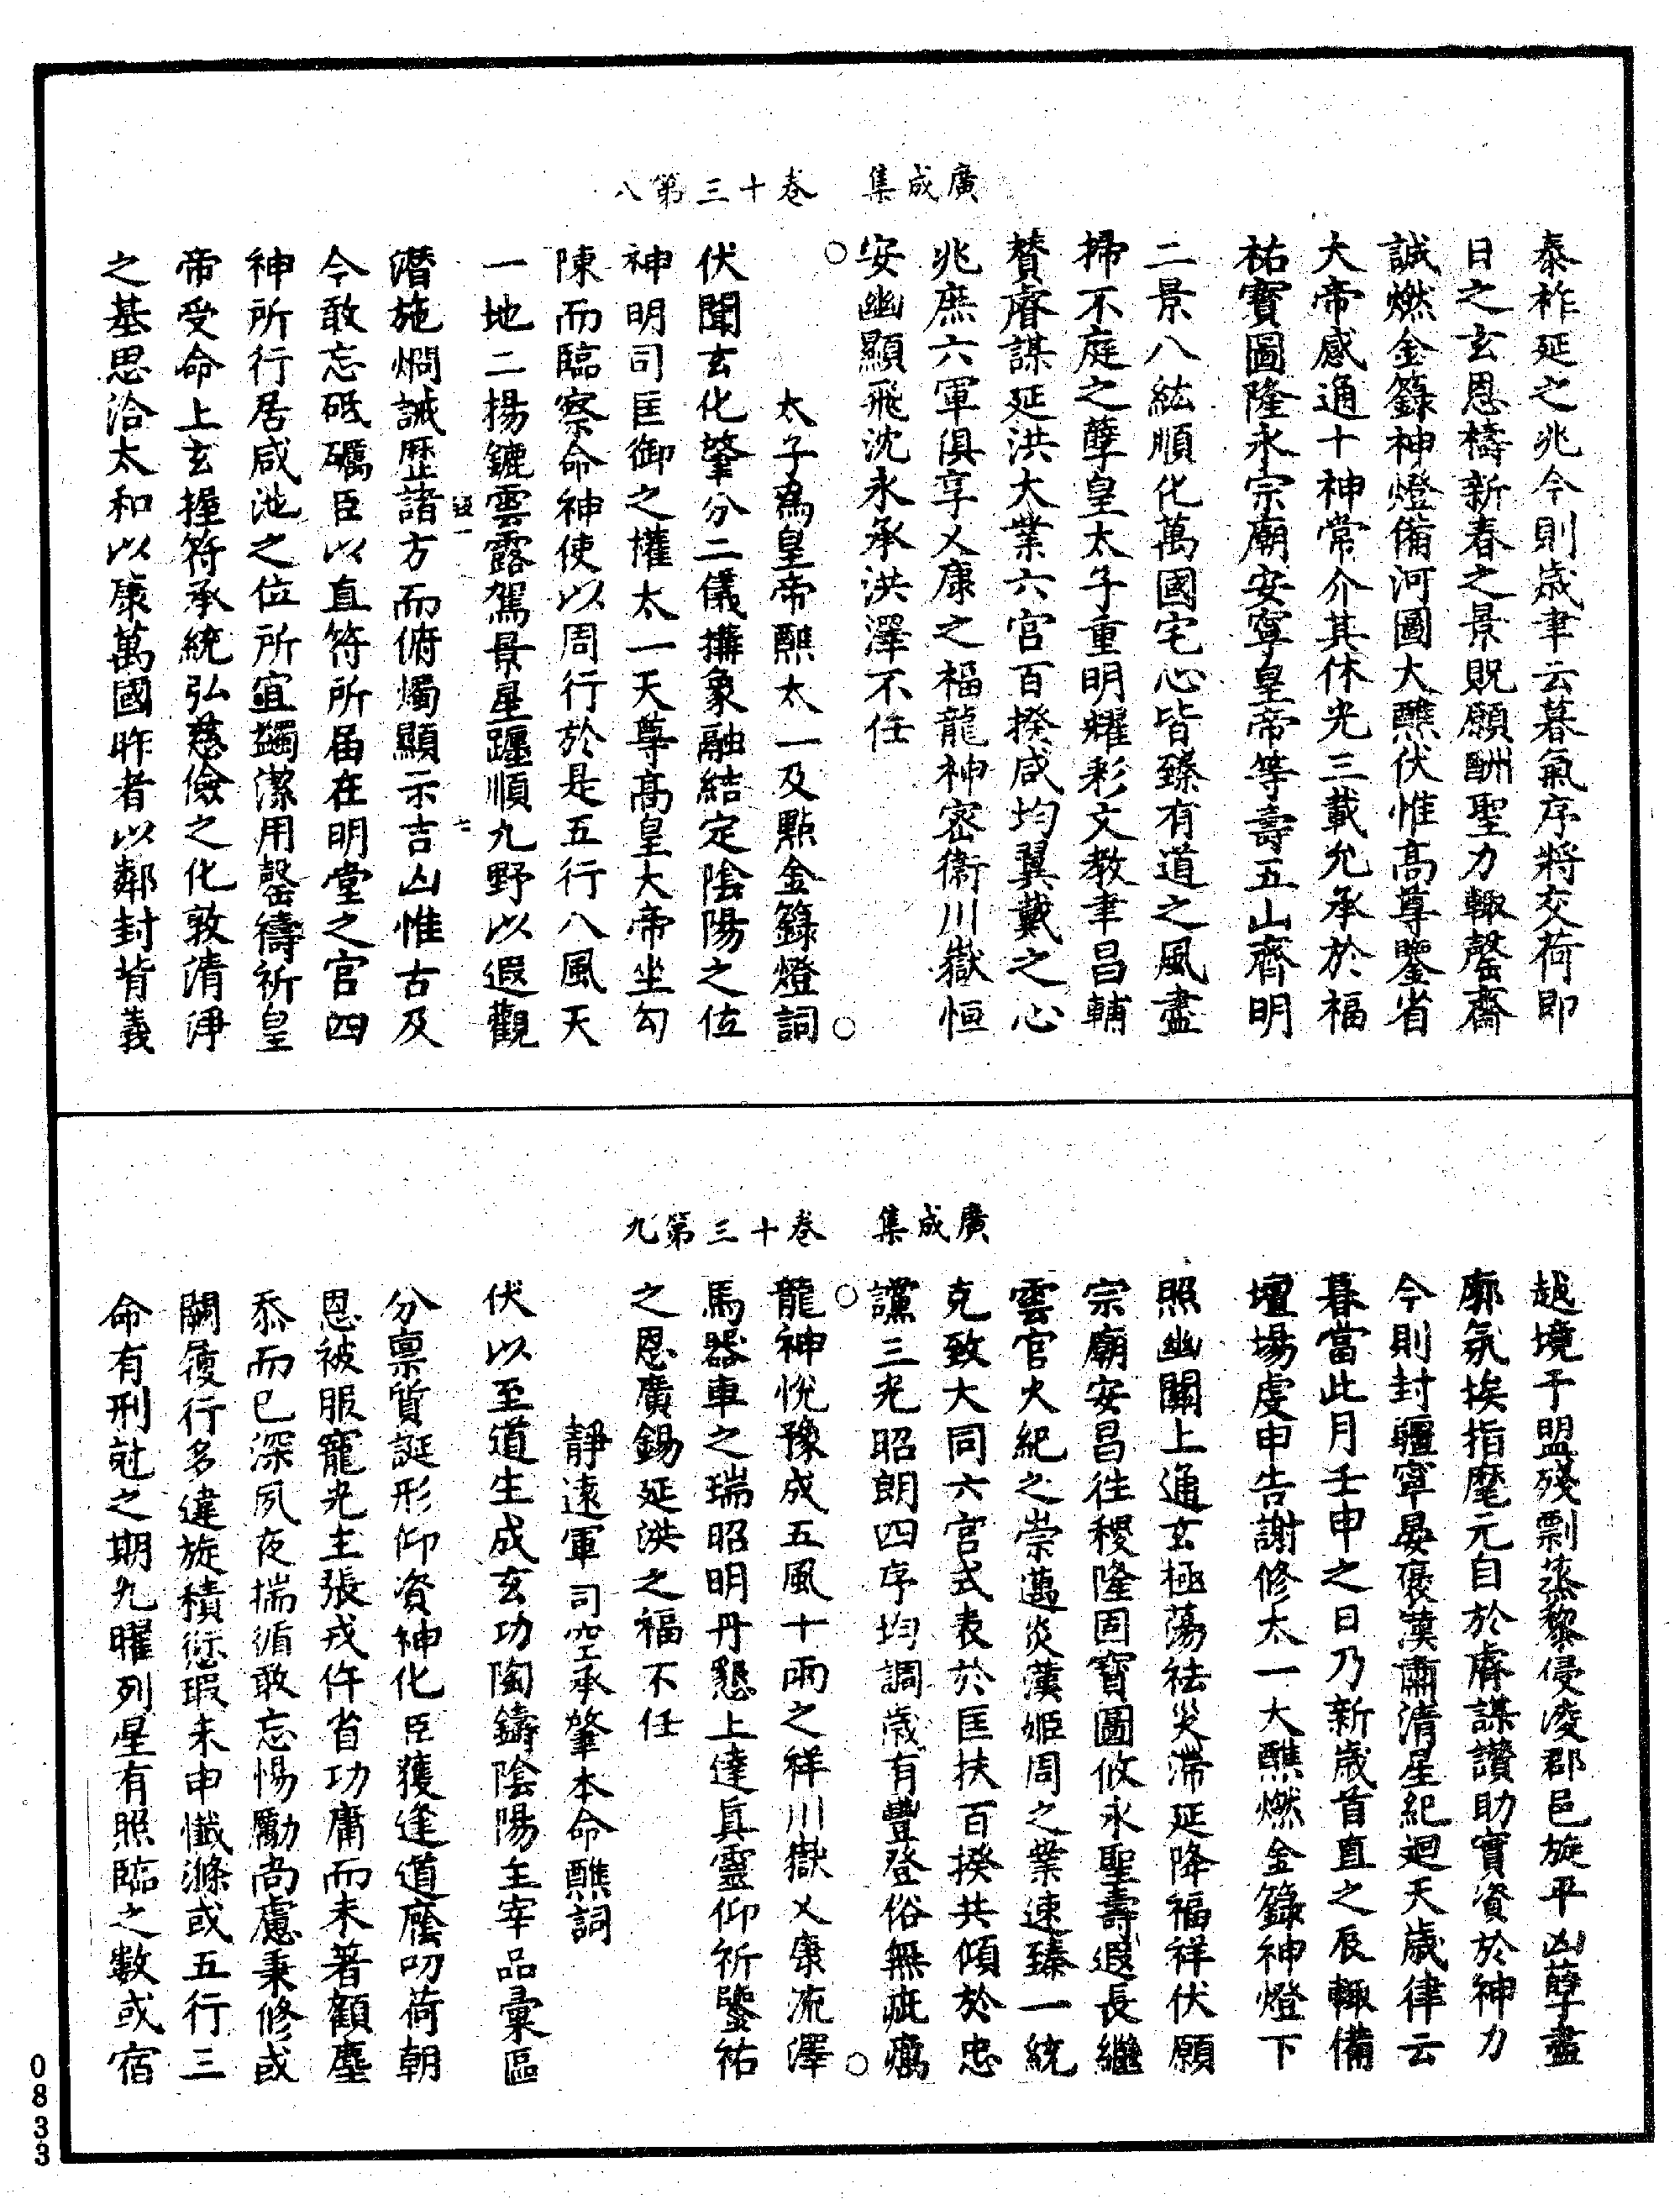 廣成集　卷十三第八
泰柞延之兆今則歲聿云暮氣序將交荷即
日之玄恩禱新春之景貺願酬聖力輙罄齋
誠燃金籙神燈備河圖大醮伏惟高尊鑒省
大帝感通十神常介其休光三載允承於福
祐寶圖隆永宗廟安寧皇帝等壽五山齊明
二景八紘順化萬國宅心皆臻有道之風盡
掃不庭之孽皇太子重明耀彩文教聿昌輔
賛睿謀延洪大業六宫百揆咸均翼戴之心
兆庶六軍俱享乂康之福龍神密衞川嶽恒
安幽顯飛沈永承洪澤不任
太子爲皇帝醮太一及點金籙燈詞
伏聞玄化肇分二儀攡象融結定陰陽之位
神明司匡御之權太一天尊高皇大帝坐勾
陳而臨察命神使以周行於是五行八風天
一地二揚鑣雲露駕景星躔順九野以遐觀
濳施烱誡歷諸方而俯燭顯示吉凶惟古及
今敢忘砥礪臣以直符所届在明堂之宫四
神所行居咸池之位所宜蠲潔用罄禱祈皇
帝受命上玄握符承統弘慈儉之化敦清淨
之基思洽太和以康萬國昨者以鄰封背義
廣成集　卷十三第九
越境干盟殘剽蒸黎侵凌郡邑旋平凶孽盡
廓氛埃指麾元自於睿謀讚助實資於神力
今則封疆寧晏褒漢肅清星紀迴天歲律云
暮當此月壬申之日乃新歲首直之辰輙備
壇場虔申告謝修太一大醮燃金籙神燈下
照幽關上通玄極蕩祛災滯延降福祥伏願
宗廟安昌社稷隆固寶圖攸永聖壽遐長繼
雲官火紀之崇邁炎漢姬周之業速臻一統
克致大同六宫式表於匡扶百揆共傾於忠
讜三光昭朗四序均調歲有豐登俗無疵癘
龍神悅豫成五風十雨之祥川嶽乂康流澤
馬器車之瑞昭明丹懇上達真靈仰祈鑒祐
之恩廣錫延洪之福不任
靜遠軍司空承肇本命醮詞
伏以至道生成玄功陶鑄陰陽主宰品彙區
分禀質誕形仰資神化臣獲逢道廕叨荷朝
恩被服寵光主張戎仵省功庸而未著顧塵
忝而已深夙夜揣循敢忘惕勵尚慮秉修或
闕履行多違旋積愆瑕未申懺滌或五行三
命有刑尅之期九曜列星有照臨之數或宿
0833